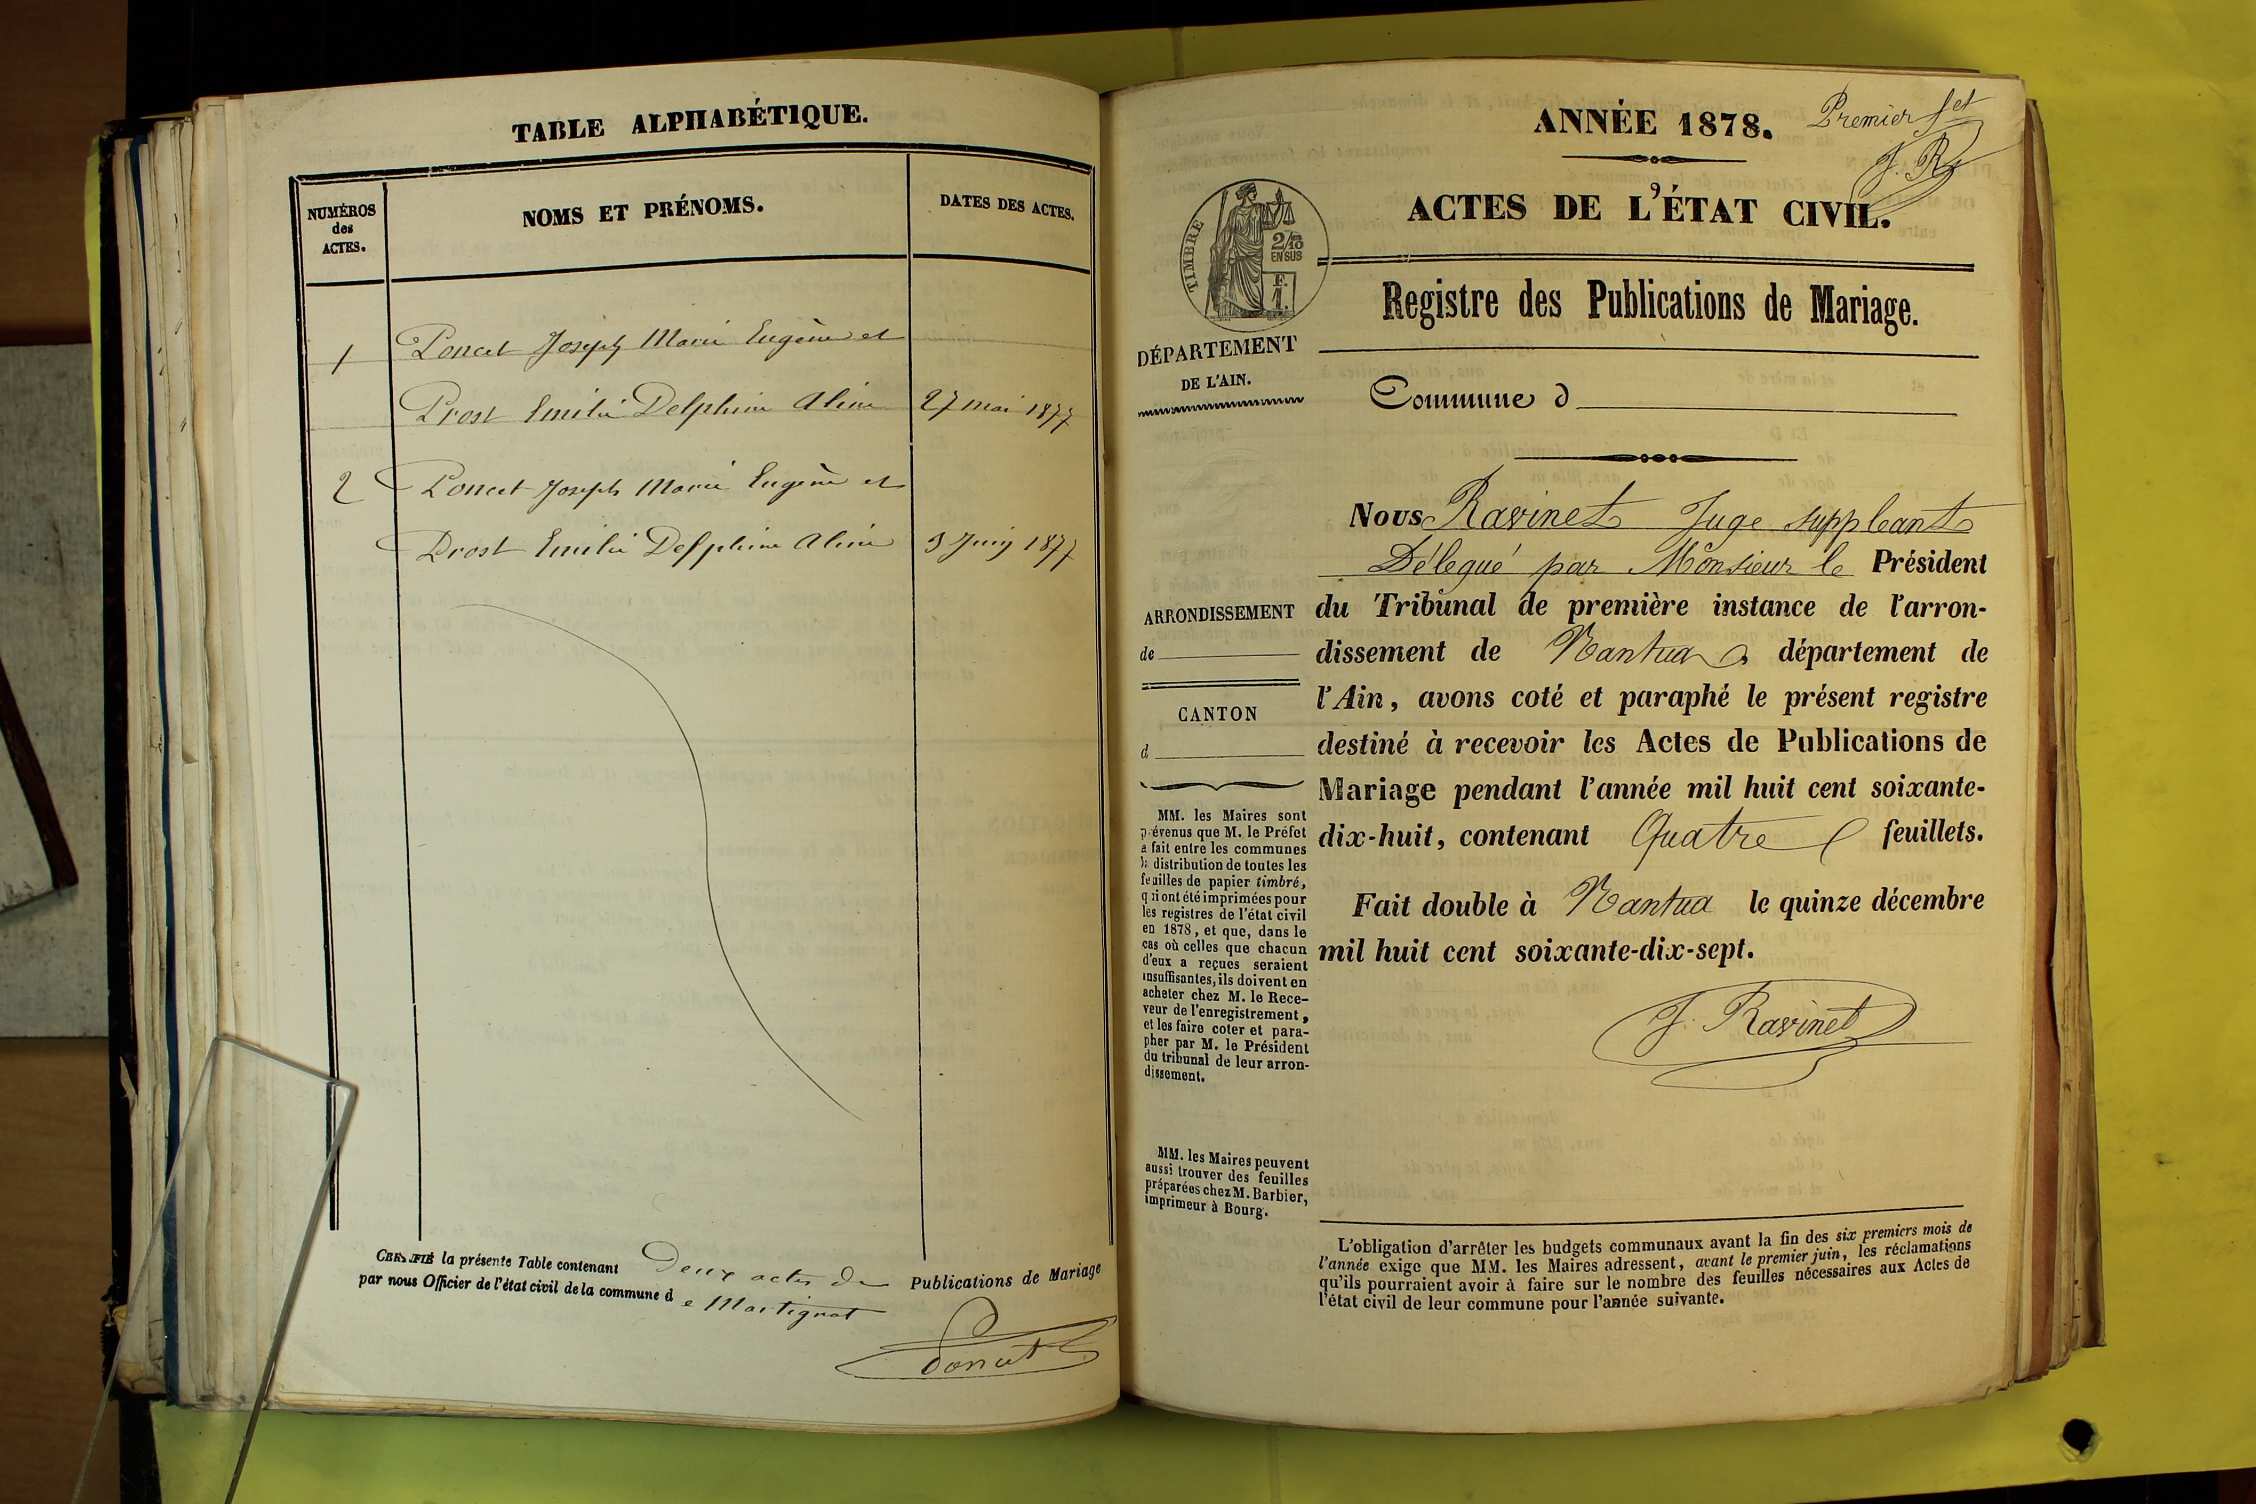 TABLE ALPHABÉTIQUE.
NUMÉROS
des
ACTES.
NOMS ET PRÉNOMS.
DATES DES ACTES.
1 Poncet Joseph Marie Eugène et
Prost Emilie Delphine Aline 27 mai 1877
2 Poncet Joseph Marie Eugène et
Prost Emilie Delphine Aline 3 Juin 1877
CERTIFIÉ la présente Table contenant Deux actes de Publications de Mariage
par nous Officier de l'état civil de la commune de Martignat
Poncet
Premier f.et
J. R.
ANNÉE 1878.
ACTES DE L'ÉTAT CIVIL.
TIMBRE
2/10
EN SUS
F.
1.
Registre des Publications de Mariage.
DÉPARTEMENT
DE L'AIN.
Commune d
ARRONDISSEMENT
de
CANTON
d
MM. les Maires sont
prévenus que M. le Préfet
a fait entre les communes
la distribution de toutes les
feuilles de papier timbré,
qui ont été imprimées pour
les registres de l'état civil
en 1878, et que, dans le
cas où celles que chacun
d'eux a reçues seraient
insuffisantes, ils doivent en
acheter chez M. le Rece-
veur de l'enregistrement,
et les faire coter et para-
pher par M. le Président
du tribunal de leur arron-
dissement.
MM. les Maires peuvent
aussi trouver des feuilles
préparées chez M. Barbier,
imprimeur à Bourg.
Nous Ravinet Juge suppléant
Délegué par Monsieur le Président
du Tribunal de première instance de l'arron-
dissement de Nantua, département de
l'Ain, avons coté et paraphé le présent registre
destiné à recevoir les Actes de Publications de
Mariage pendant l'année mil huit cent soixante-
dix-huit, contenant Quatre feuillets.
Fait double à Nantua le quinze décembre
mil huit cent soixante-dix-sept.
J. Ravinet
L'obligation d'arrêter les budgets communaux avant la fin des six premiers mois de
l'année exige que MM. les Maires adressent, avant le premier juin, les réclamations
qu'ils pourraient avoir à faire sur le nombre des feuilles nécessaires aux Actes de
l'état civil de leur commune pour l'année suivante.